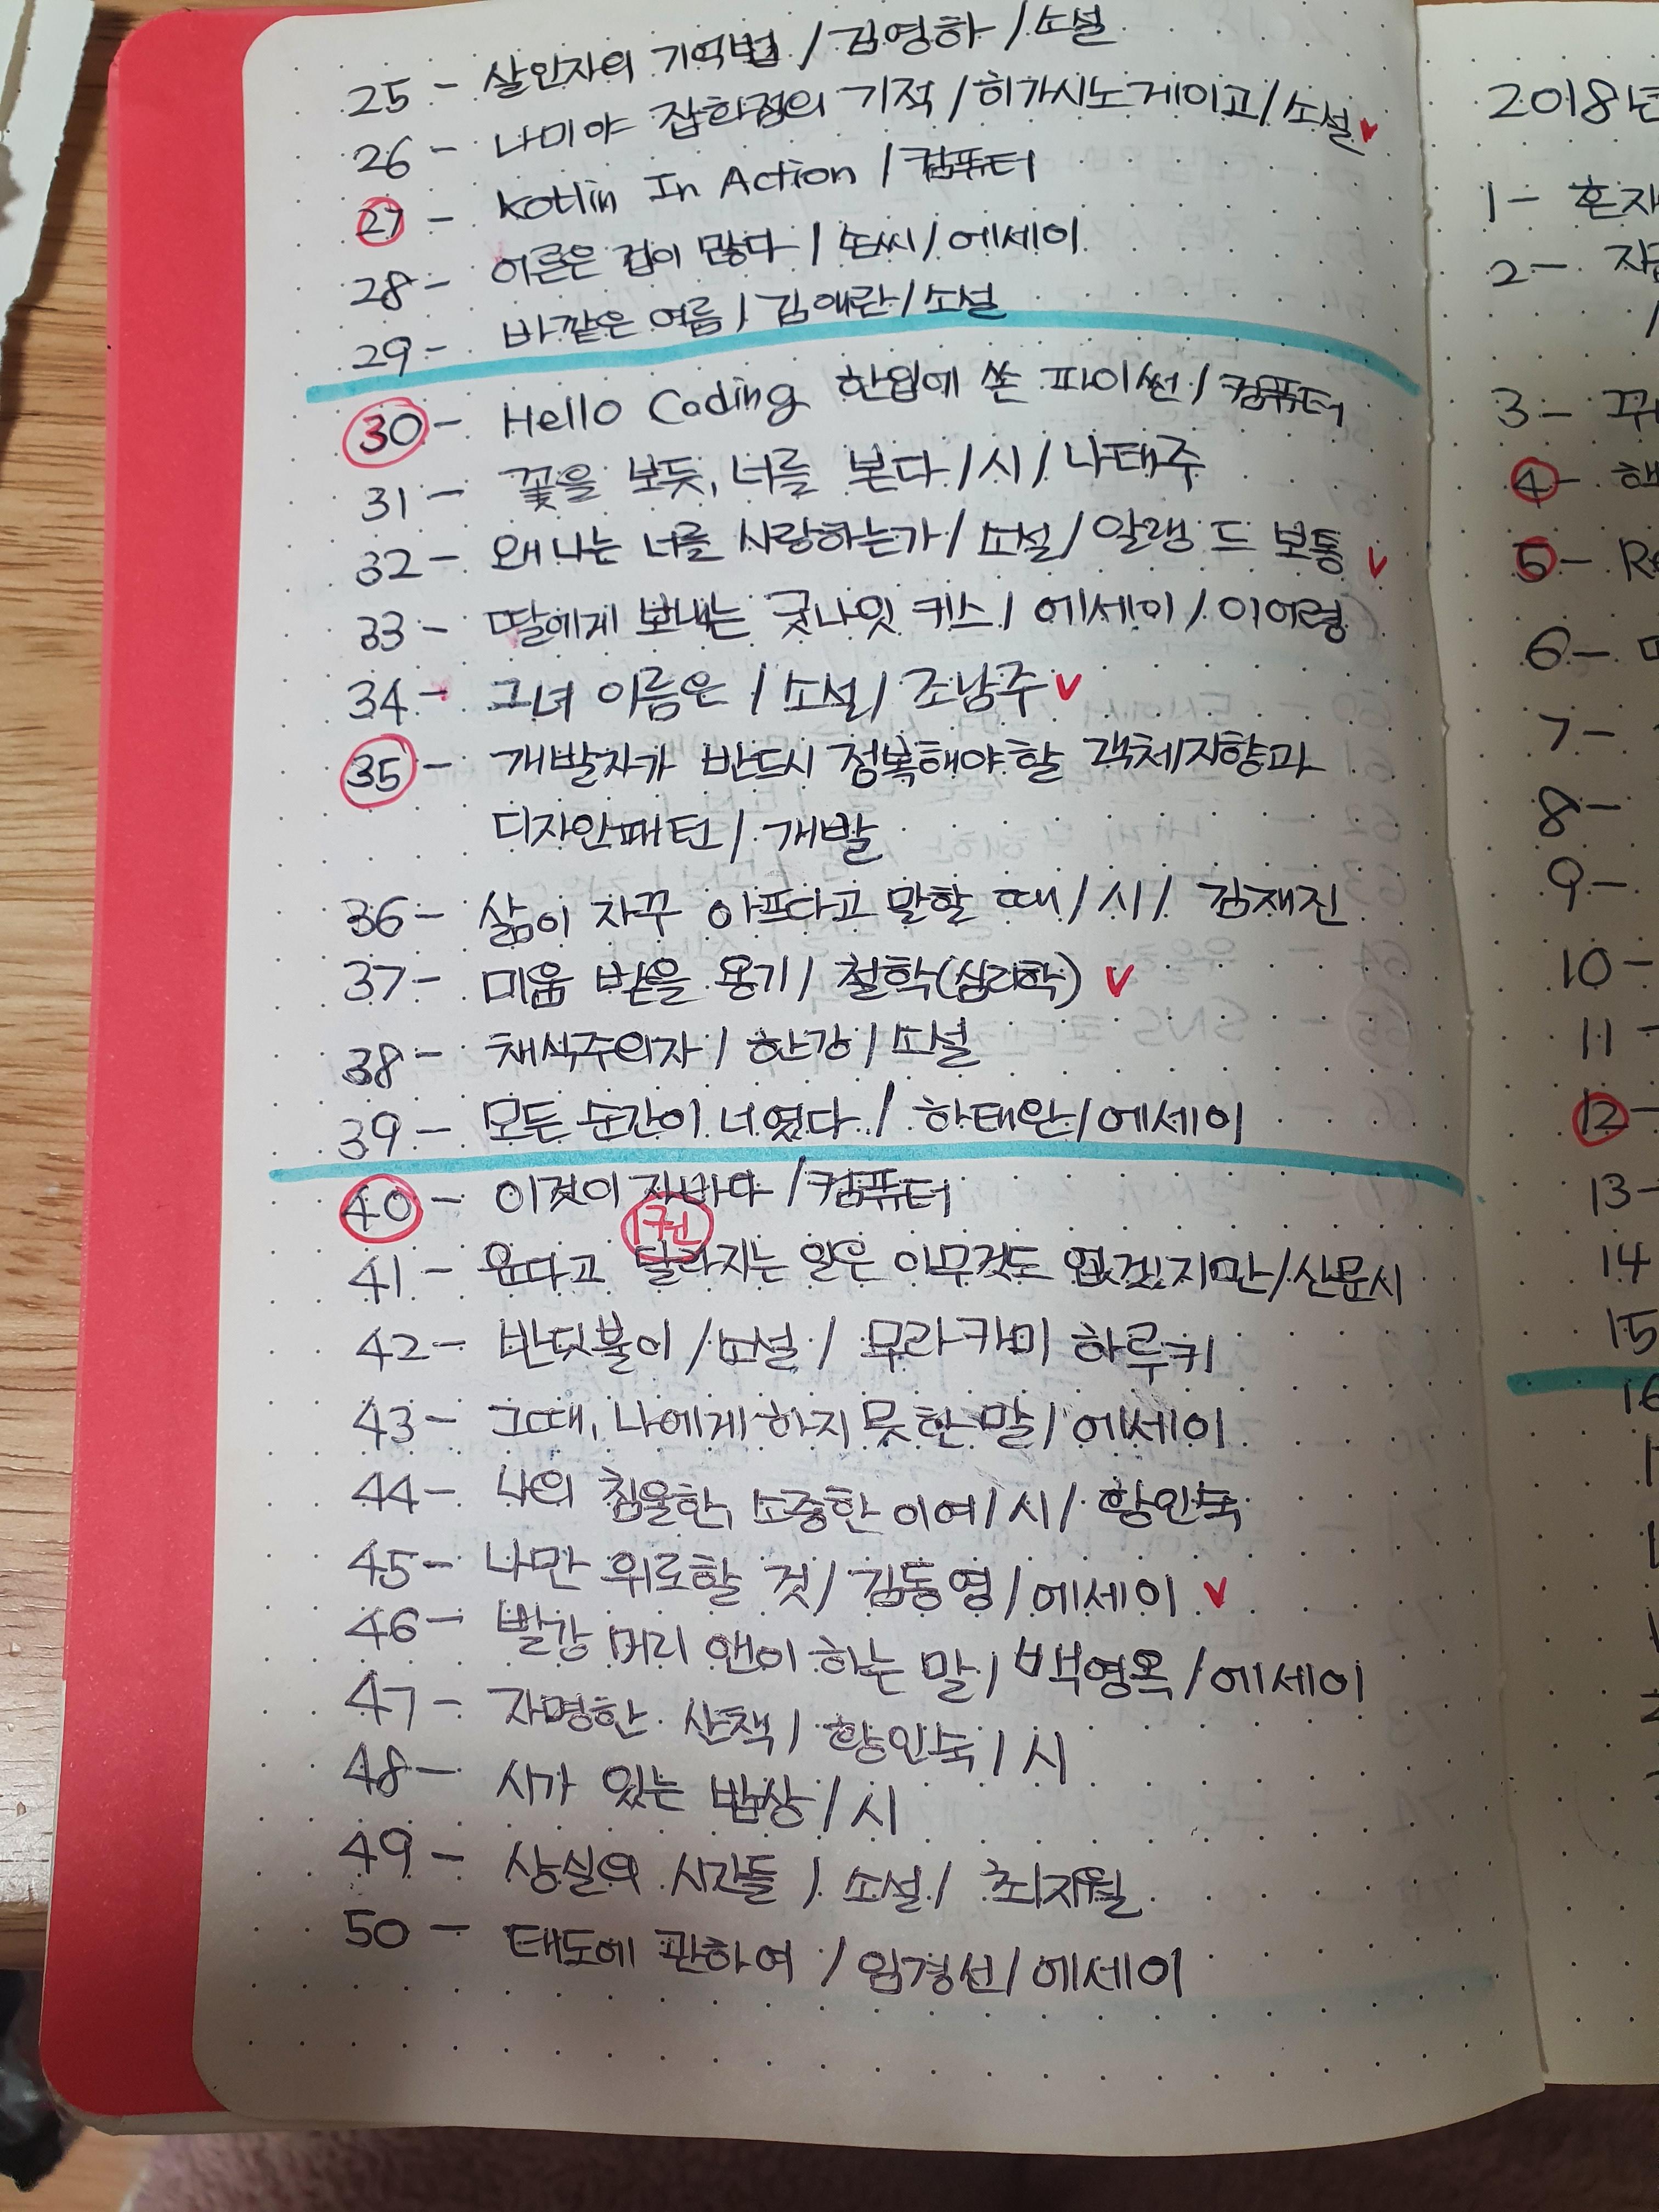 25 - 살인자의 기억법 / 김영하 / 소설
26 - 나미야 잡화점의 기적 / 히가시노게이고 / 소설 v
27 - Kotlin In Action / 컴퓨터
28 - 어른은 겁이 많다 / 손씨 / 에세이
29 - 바깥은 여름 / 김애란 / 소설
30 - Hello Coding 한입에 쏙 파이썬 / 컴퓨터
31 - 꽃을 보듯, 너를 본다 / 시 / 나태주
32 - 왜 나는 너를 사랑하는가 / 소설 / 알랭 드 보통 v
33 - 딸에게 보내는 굿나잇 키스 / 에세이 / 이어령
34 - 그녀 이름은 / 소설 / 조남주 v
35 - 개발자가 반드시 정복해야할 객체지향과
디자인패턴 / 개발
36 - 삶이 자꾸 아프다고 말할 때 / 시 / 김재진
37 - 미움 받을 용기 / 철학(심리학) v
38 - 채식주의자 / 한강 / 소설
39 - 모든 순간이 너였다 / 하태완 / 에세이
40 - 이것이 자바다 / 컴퓨터
1권
41 - 운다고 달라지는 일은 아무것도 없겠지만 / 산문시
42 - 반딧불이 / 소설 / 무라카미 하루키
43 - 그때, 나에게 하지 못한 말 / 에세이
44 - 나의 침울한, 소중한 이여 / 시 / 황인숙
45 - 나만 위로할 것 / 김동영 / 에세이 v
46 - 빨강 머리 앤이 하는 말 / 백영옥 / 에세이
47 - 자명한 산책 / 황인숙 / 시
48 - 시가 있는 밥상 / 시
49 - 상실의 시간들 / 소설 / 최지월
50 - 태도에 관하여 / 임경선 / 에세이
2018년
1 - 혼자
2 -
/
3 -
4 -
5 - Re
6 -
7 -
8 -
9 -
10 -
11 -
12 -
13 -
14
15
16